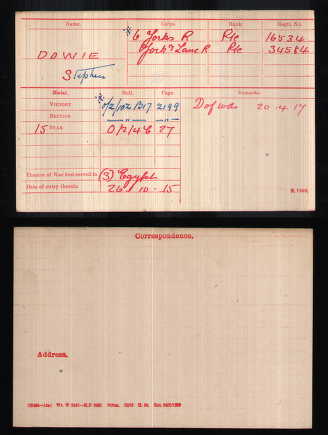 Name. Corps. Rank Regtl. No.
* 6 Yorks R Pte 16534
DOWIE York & Lanc R Pte 34584
Stephen
Medal. Roll. Page Remarks.
VICTORY * O/2/102 B17 2199 D of W 20.4.17
BRITISH —"— —"—
15 STAR O/2/4B 27
Theatre of War first served in (3) Egypt
Date of entry therein 26.10.15
Correspondence.
Address.